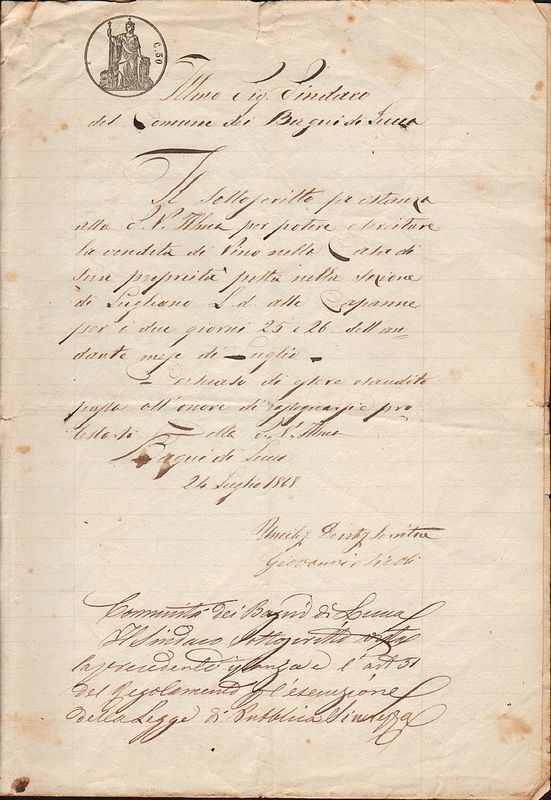 C. 50
Illmo Sig. Sindaco
del Comune dei Bagni di Lucca
Il sottoscritto fa istanza
alla S. V. Illma per potere esercitare
la vendita di Vino nella Casa di
sua proprietà posta nella sezione
di Lugliano L. d. alle Capanne
per i due giorni 25 e 26 dell'an=
dante mese di Luglio
Persuaso di essere esaudito
passa all'onore di segnarsi e pro
testarsi Della S. V. Illma
Bagni di Lucca
24 Luglio 1868
Umilis Devotis Servitore
Giovanni
Comunità dei Bagni di Lucca
Il Sindaco sottoscritto vista
la precedente istanza e l'art 51
del Regolamento p l'esecuzione
della Legge di Pubblica Sicurezza